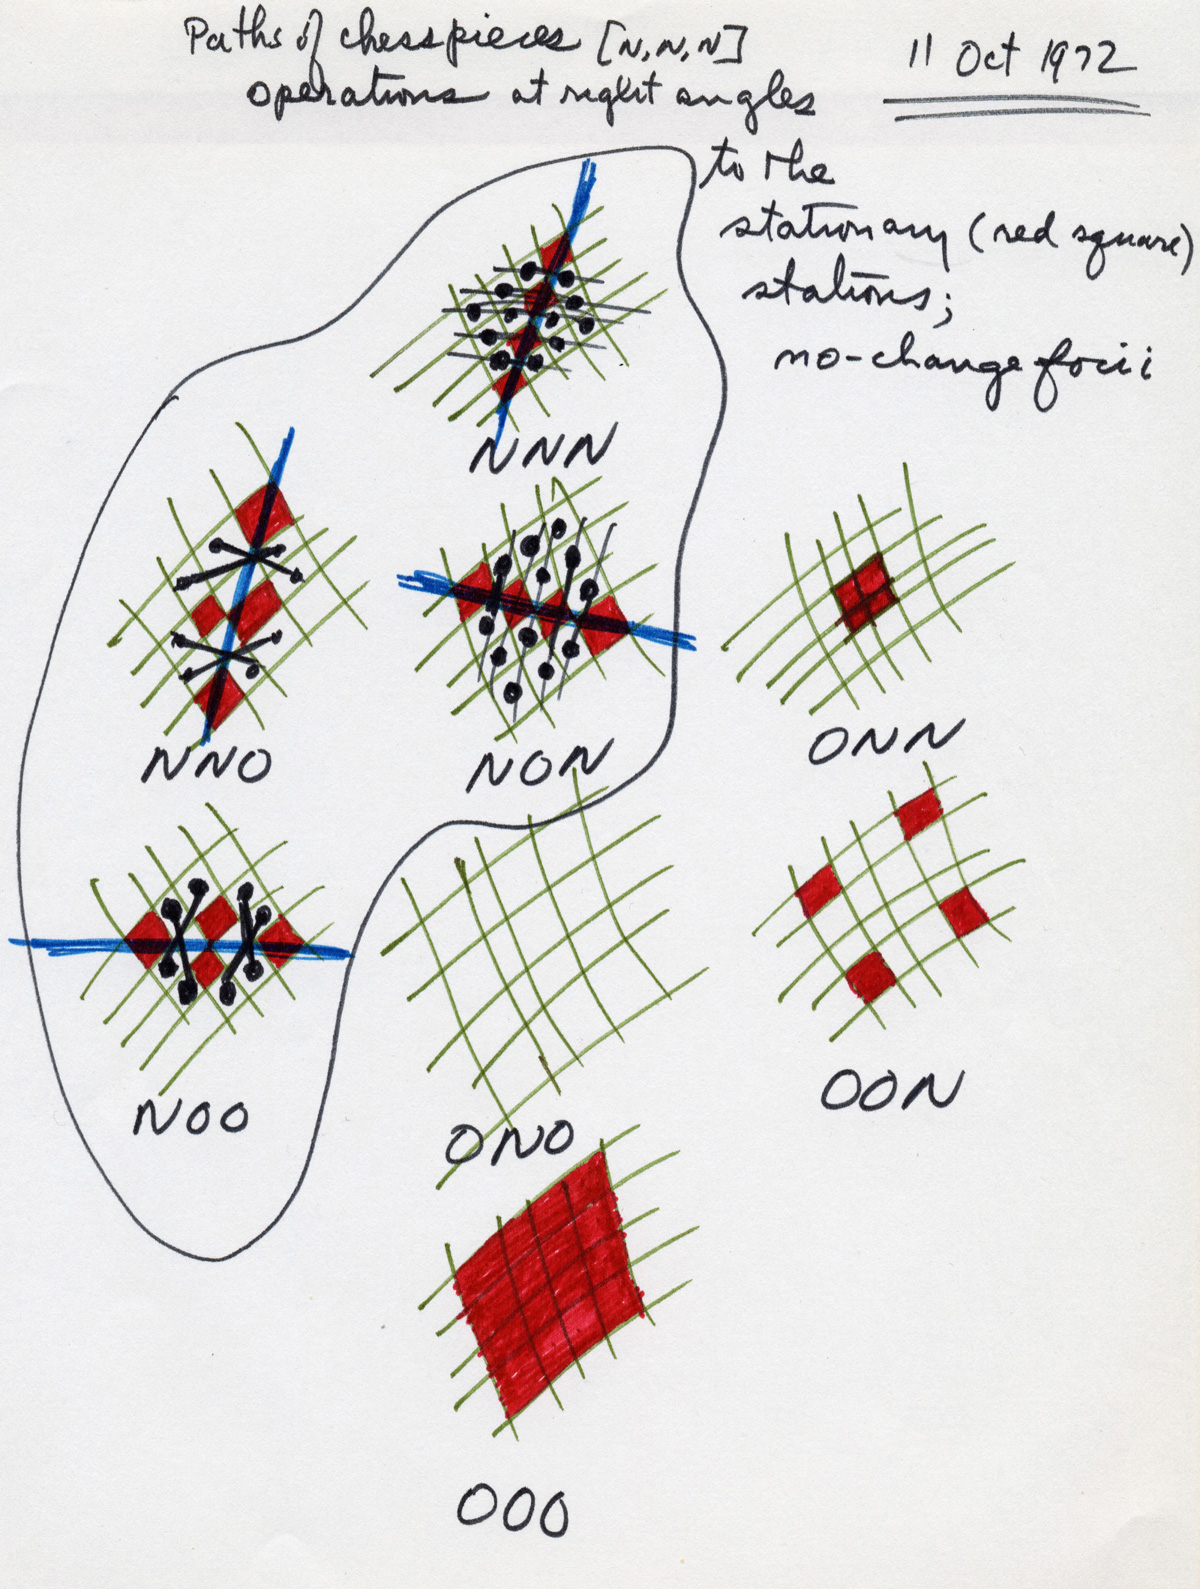 Paths of chesspieces [N,N,N]
11 Oct 1972
operations at right angles
to the
stationary (red square)
stations;
no-change focii
NNN
NNO
NON
ONN
NOO
ONO
OON
OOO